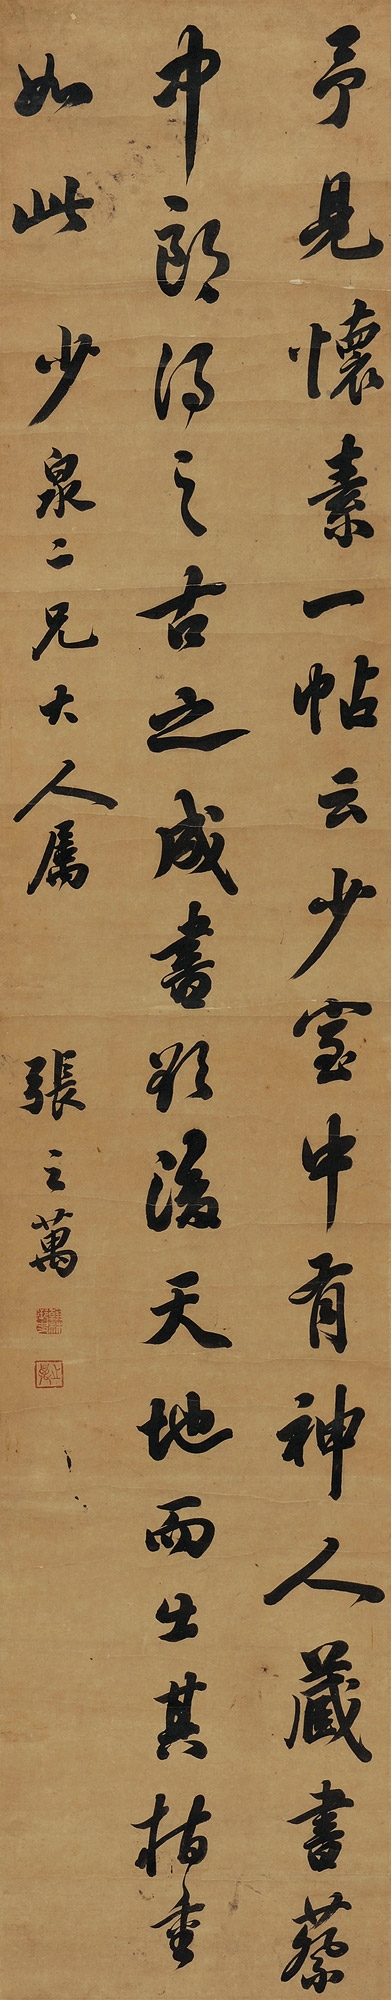 予見懷素一帖云少室中有神人藏書蔡
中郎得之古之成書欲後天地而出其指重
如此 少泉二兄大人屬 張之萬